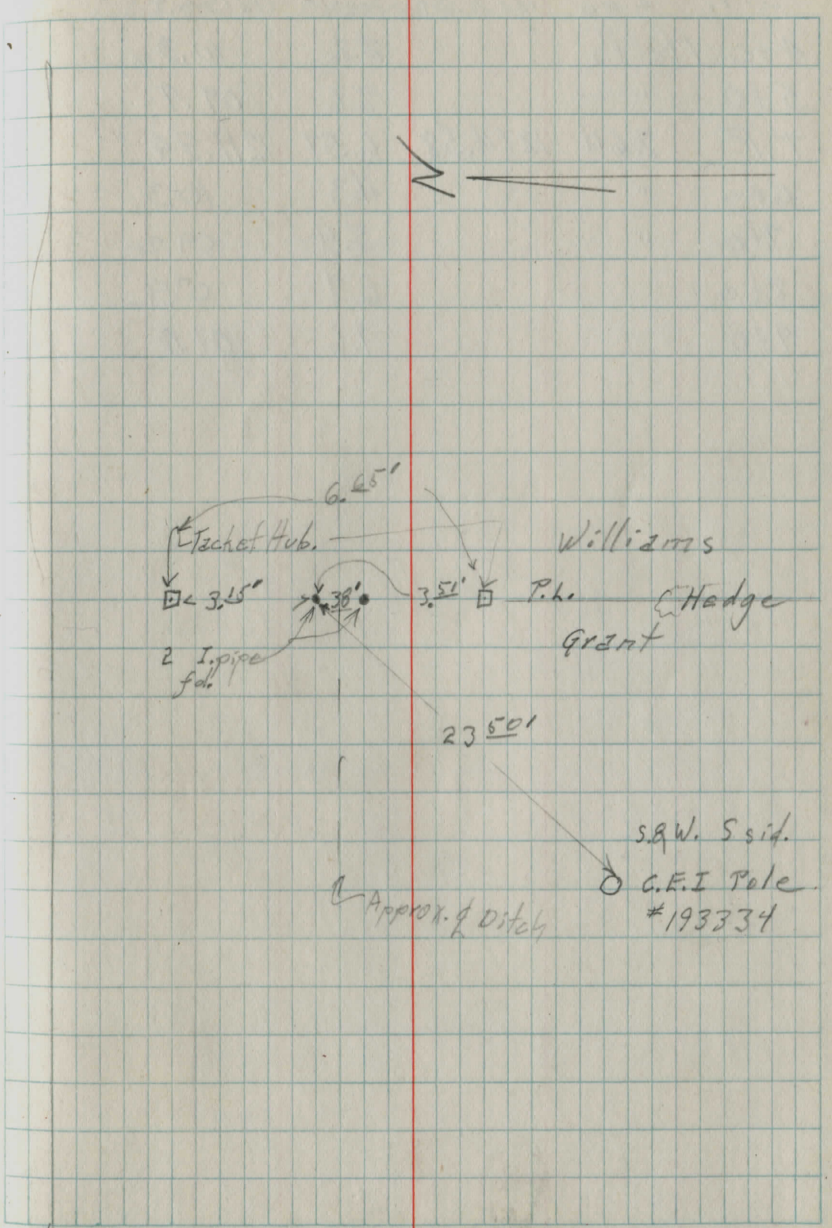 6.65'
Tachet Hub.
Williams
3.15'
.38'
3.51'
P.L.
Hedge
Grant
2 I.pipe
fd.
23 50'
S.&W. S sid.
C.E.I Pole
#193334
Approx. ℄ Ditch